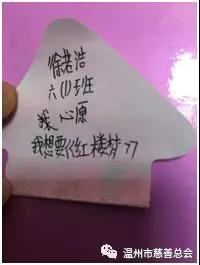 徐若浩
六(1)班
我心原
我想要《红楼梦》
温州市慈善总会